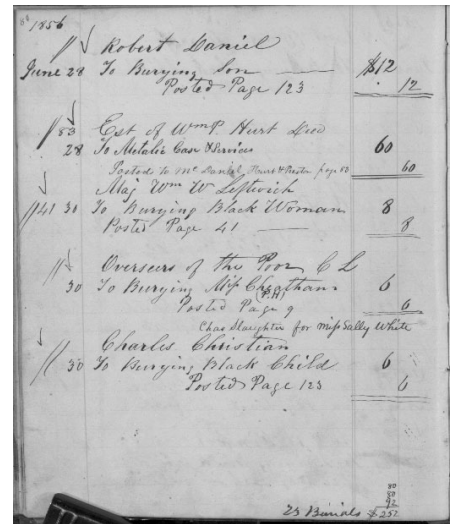 88 1856
// Robert Daniel
June 28 To Burying Son —— $12
Posted Page 123 12
// 83 Est of Wm P. Hurt Decd
28 To Metalic Case & Services 60
Posted to McDaniel, Hurt & Preston page 80 60
Maj Wm W Leftwich
// 41 30 To Burying Black Woman 8
Posted Page 41 —— 8
// Overseers of the Poor C L
30 To Burying Miss Cheatham 6
(P.H)
Posted Page 9 6
Chas Slaughter for Miss Sally White
Charles Christian
// 30 To Burying Black Child 6
Posted Page 123 6
80
80
92
23 Burials $ 252